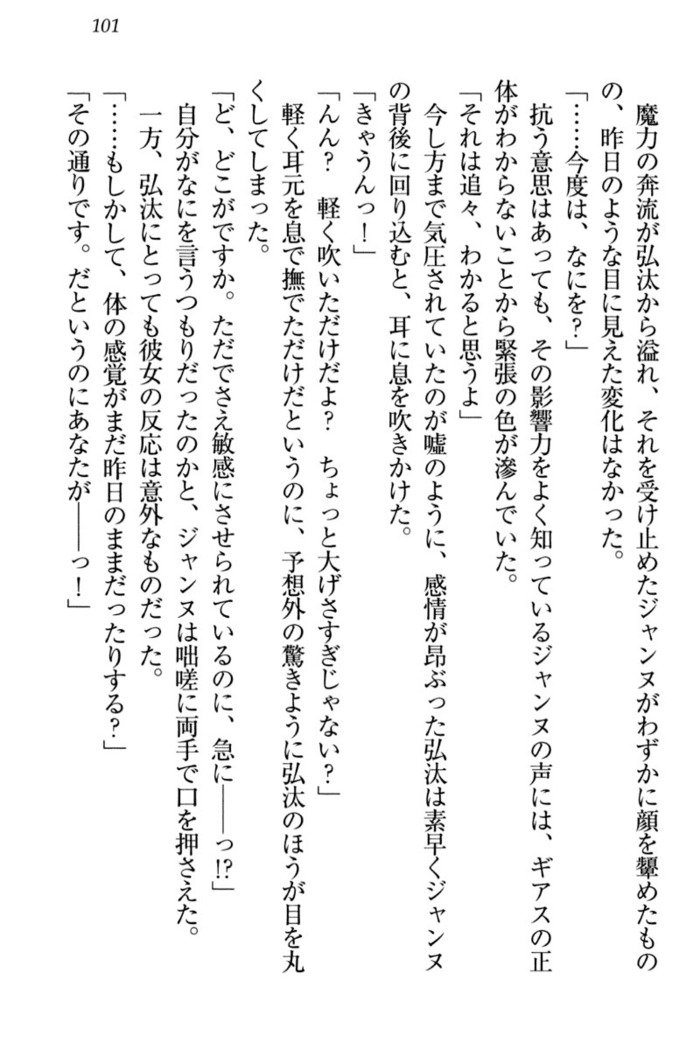 101
魔力の奔流が弘汰から溢れ、それを受け止めたジャンヌがわずかに顔を顰めたもの
の、昨日のような目に見えた変化はなかった。
「……今度は、なにを？」
抗う意思はあっても、その影響力をよく知っているジャンヌの声には、ギアスの正
体がわからないことから緊張の色が滲んでいた。
「それは追々、わかると思うよ」
今し方まで気圧されていたのが嘘のように、感情が昂ぶった弘汰は素早くジャンヌ
の背後に回り込むと、耳に息を吹きかけた。
「きゃうんっ！」
「んん？　軽く吹いただけだよ？　ちょっと大げさすぎじゃない？」
軽く耳元を息で撫でただけだというのに、予想外の驚きように弘汰のほうが目を丸
くしてしまった。
「ど、どこがですか。ただでさえ敏感にさせられているのに、急に――っ!?」
自分がなにを言うつもりだったのかと、ジャンヌは咄嗟に両手で口を押さえた。
一方、弘汰にとっても彼女の反応は意外なものだった。
「……もしかして、体の感覚がまだ昨日のままだったりする？」
「その通りです。だというのにあなたが――っ！」